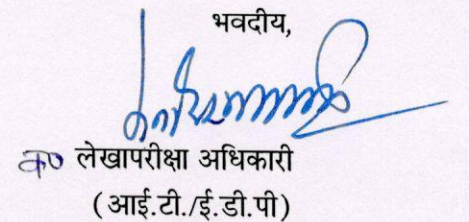 भवदीय,
व० लेखापरीक्षा अधिकारी
(आई.टी./ई.डी.पी)